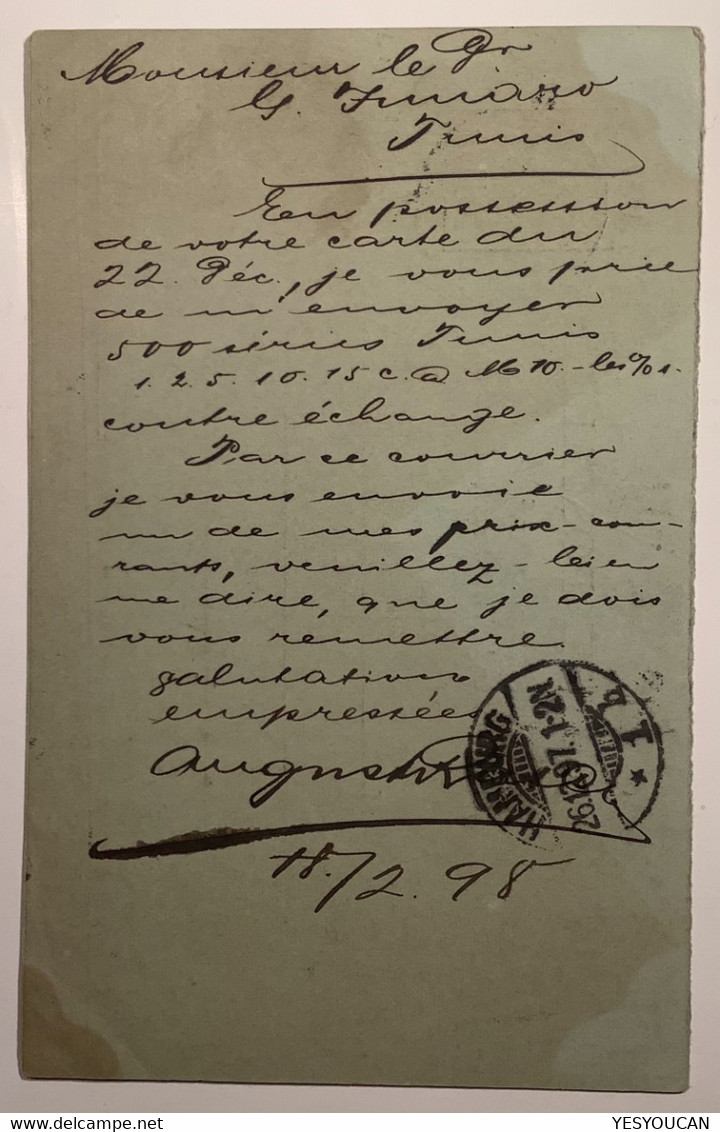 Monsieur le Dr
G. Funaro
Tunis
En possession
de votre carte du
22. Déc., je vous prie
de m'envoyer
500 séries Tunis
1. 2. 5. 10. 15 c. @ M 10.- les % s.
contre échange.
Par ce courrier
je vous envoie
un de mes prix-cou-
rants, veuillez-bien
me dire, que je dois
vous remettre.
Salutations
empressées
August
HARBURG
* 1 b
26.12.97. 1-2N
18./2. 98
YESYOUCAN